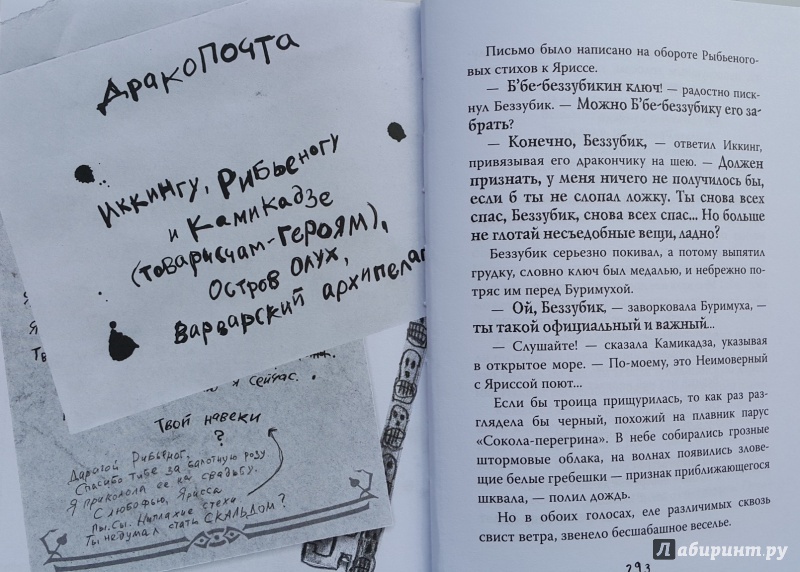 ДракоПочта
Иккингу, Рыбьеногу
и Камикадзе
(товарисчам-героям),
Остров Олух,
Варварский архипелаг
я сейчас.
Твой навеки
?
Дарагой Рыбьеног.
Спасибо тибе за балотную розу
Я приколола ее на свадьбу.
С любофью, Ярисса
Пы.Сы. Ниплахие стехи.
Ты недумал стать СКАЛЬДОМ?
Письмо было написано на обороте Рыбьеног-
овых стихов к Яриссе.
— Б’бе-беззубикин ключ! — радостно писк-
нул Беззубик. — Можно Б’бе-беззубику его за-
брать?
— Конечно, Беззубик, — ответил Иккинг,
привязывая его дракончику на шею. — Должен
признать, у меня ничего не получилось бы,
если б ты не слопал ложку. Ты снова всех
спас, Беззубик, снова всех спас... Но больше
не глотай несъедобные вещи, ладно?
Беззубик серьезно покивал, а потому выпятил
грудку, словно ключ был медалью, и небрежно по-
тряс им перед Буримухой.
— Ой, Беззубик, — заворковала Буримуха, —
ты такой официальный и важный...
— Слушайте! — сказала Камикадза, указывая
в открытое море. — По-моему, это Неимоверный
с Яриссой поют...
Если бы троица прищурилась, то как раз раз-
глядела бы черный, похожий на плавник парус
«Сокола-перегрина». В небе собирались грозные
штормовые облака, на волнах появились злове-
щие белые гребешки — признак приближающегося
шквала, — полил дождь.
Но в обоих голосах, еле различимых сквозь
свист ветра, звенело бесшабашное веселье.
293
Лабиринт.ру